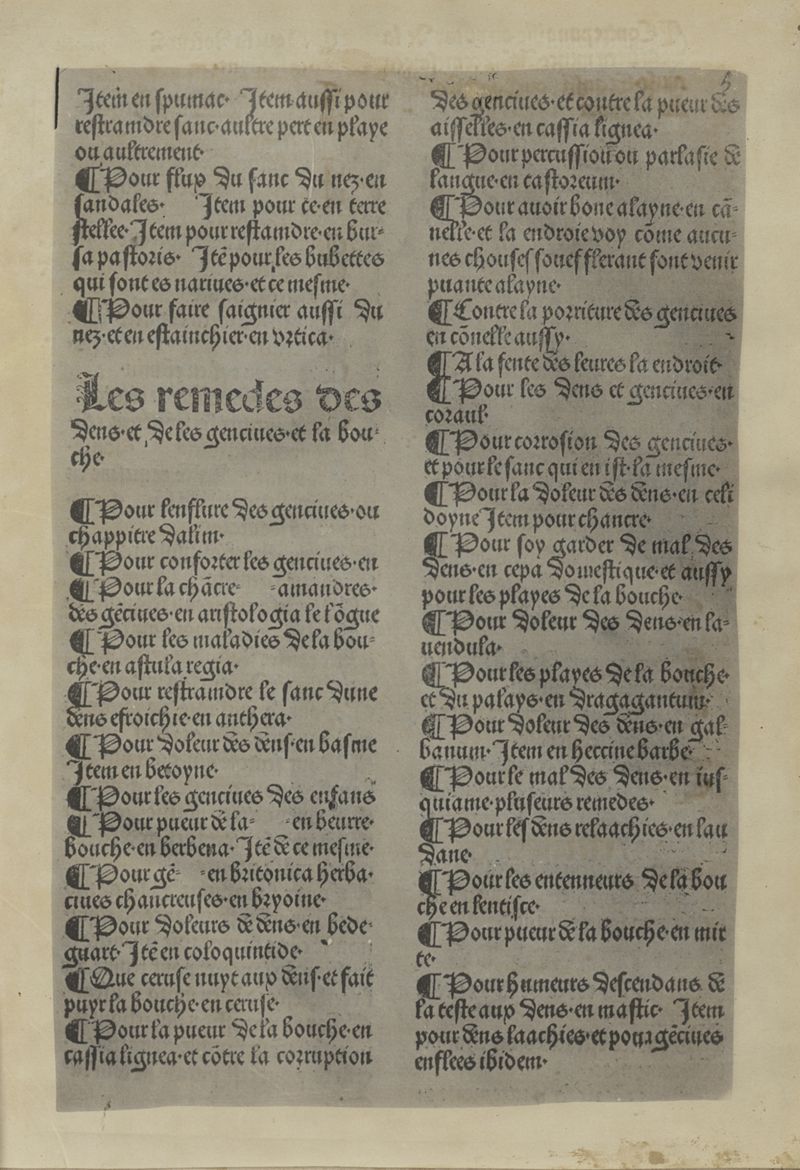 Item en spumac· Item aussi pour
restraindre sanc·aultre pert en playe
ou aultrement·
¶ Pour flup du sanc du nez·en
sandales· Item pour ce·en terre
stellee·Item pour restaindre·en bur-
sa pastoris· Itē pour les bubettes
qui sont es narines·et ce mesme·
¶ Pour faire saignier aussi du
nez·et en estainchier·en vrtica·
Les remedes des
dens·et de les genciues·et la bou-
che·
¶ Pour lenflure des genciues·ou
chappitre dalun·
¶ Pour conforter les genciues·en
¶ Pour la chācre- -amandres·
des gēciues·en aristologia le lōgue
¶ Pour les maladies de la bou-
che·en astula regia·
¶ Pour restraindre le sanc dune
dens efroichie·en anthera·
¶ Pour doleur des dens·en basme
Item en betoyne·
¶ Pour les genciues des enfans
¶ Pour pueur de la- -en beurre·
bouche·en berbena· Itē de ce mesme·
¶ Pour gē- -en britonica herba·
ciues chancreuses·en bryoine·
¶ Pour doleurs de dens·en bede-
guart·Itē en coloquintide·
¶ Que ceruse nuyt aup dens·et fait
puyr la bouche·en ceruse·
¶ Pour la pueur de la bouche·en
cassia lignea·et cōtre la corruption
5
des genciues·et contre la pueur des
aisselles·en cassia lignea·
¶ Pour percussion ou parlasie de
langue·en castoreum·
¶ Pour auoir bone alayne·en cā-
nelle·et la endroie voy cōme aucu-
nes chouses souef flerant font venir
puante alayne·
¶ Contre la porriture des genciues
en cōnelle aussy·
¶ A la fente des leures la endroit·
¶ Pour les dens et genciues·en
coraul·
¶ Pour corrosion des genciues·
et pour le sanc qui en ist·la mesme·
¶ Pour la doleur des dens·en celi
doyne Item pour chancre·
¶ Pour soy garder de mal des
dens·en cepa domestique·et aussy
pour les playes de la bouche·
¶ Pour doleur des dens·en la-
uendula·
¶ Pour les playes de la bouche·
et du palays·en dragagantum·
¶ Pour doleur des dens·en gal-
banum· Item en heccine barbe·
¶ Pour le mal des dens·en ius-
quiame·pluseurs remedes·
¶ Pour les dens relaachies·en lau
dane·
¶ Pour les entenneurs de la bou
che en lentisce·
¶ Pour pueur de la bouche·en mir
te·
¶ Pour humeurs descendans de
la teste aup dens·en mastic· Item
pour dens laachies·et pour gēciues
enflees ibidem·